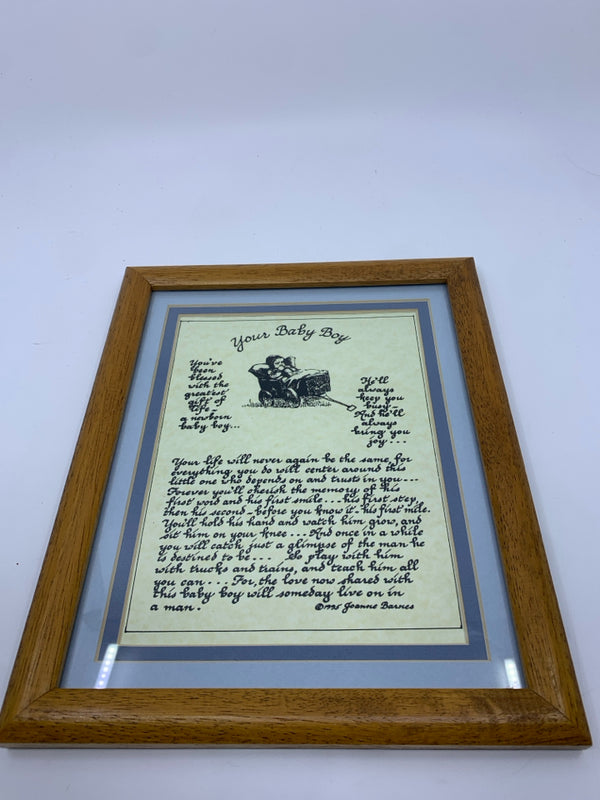 Your Baby Boy
You've
been
blessed
with the
greatest
gift of
life -
a newborn
baby boy...
He'll
always
keep you
busy -
And he'll
always
bring you
joy...
Your life will never again be the same, for
everything you do will center around this
little one who depends on and trusts in you...
Forever you'll cherish the memory of his
first word and his first smile...his first step,
then his second - before you know it - his first mile.
You'll hold his hand and watch him grow, and
sit him on your knee... And once in a while
you will catch just a glimpse of the man he
is destined to be... So play with him
with trucks and trains, and teach him all
you can... For, the love now shared with
this baby boy will someday live on in
a man. © Joanne Barnes